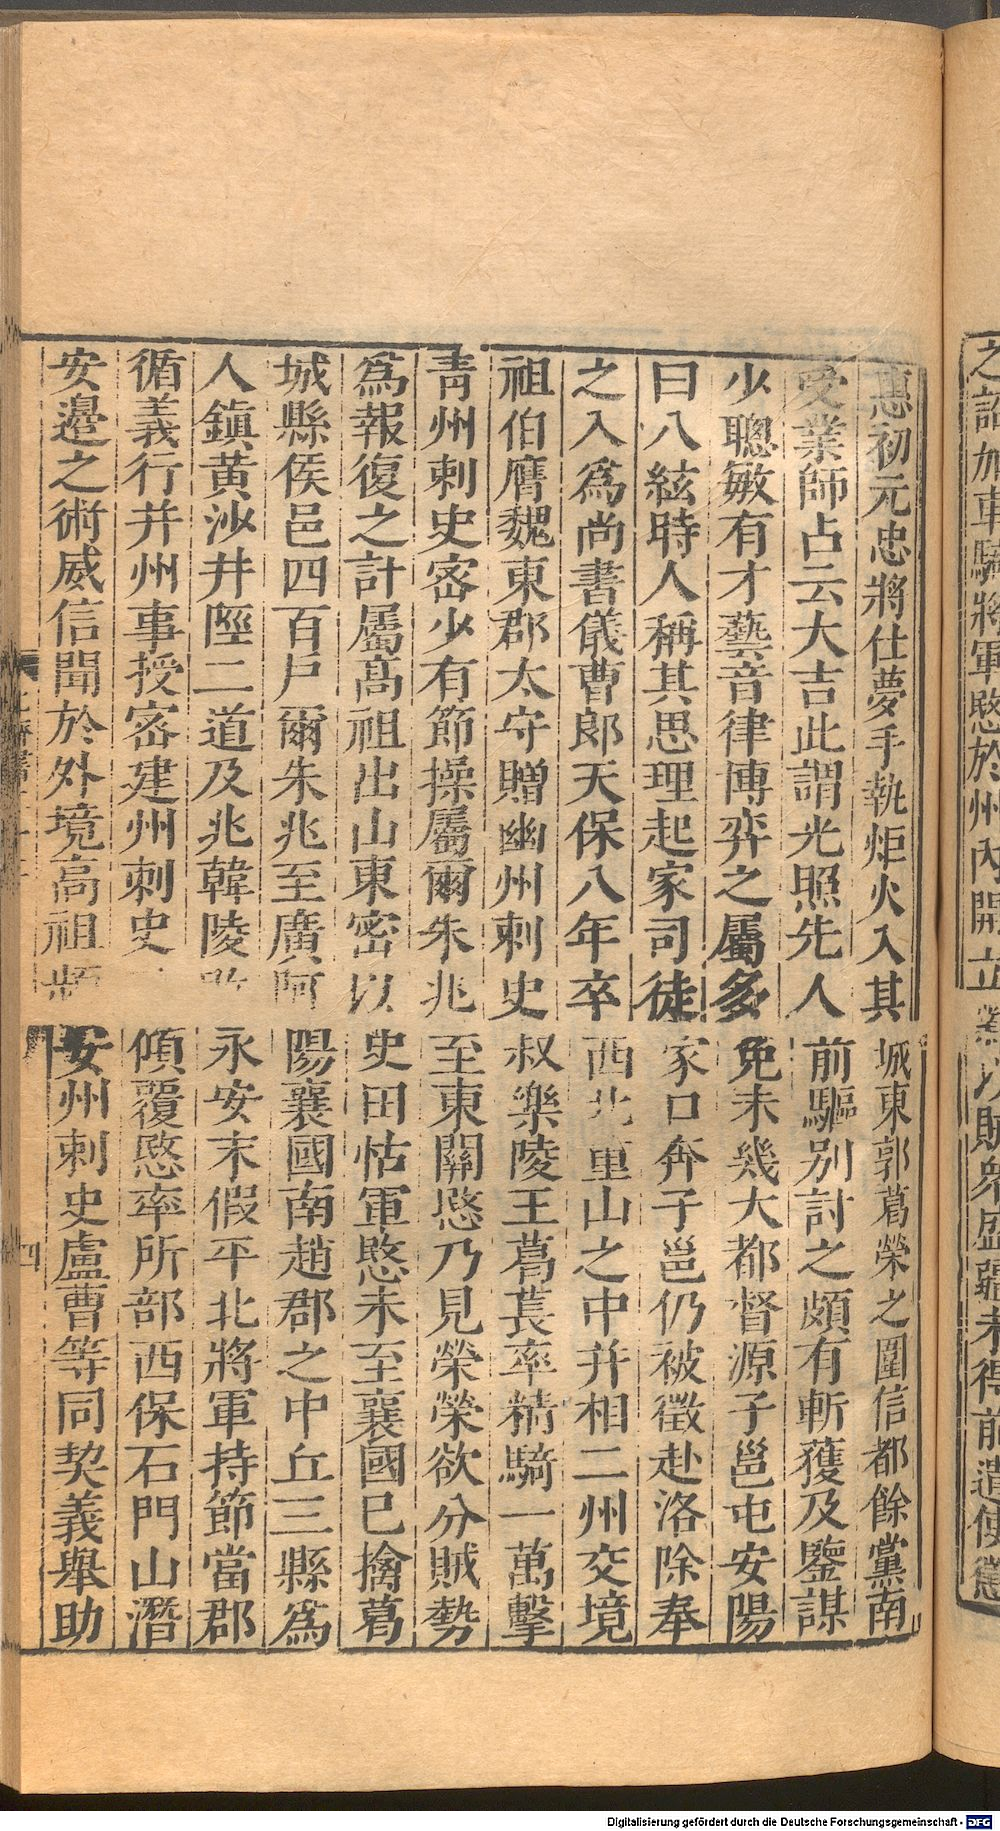 之詔加車騎將軍愍於州內開立 以賊衆盛彊未得前遣使慰
惠初元忠將仕夢手執炬火入其城東郭葛榮之圍信都餘黨南
受業師占云大吉此謂光照先人前驅別討之頗有斬獲及鑒謀
少聰敏有才藝音律博弈之屬多免未幾大都督源子邕屯安陽
曰八絃時人稱其思理起家司徒家口奔子邕仍被徵赴洛除奉
之入爲尚書儀曹郎天保八年卒西北重山之中并相二州交境
祖伯膺魏東郡太守贈幽州刺史叔樂陵王葛萇率精騎一萬擊
青州刺史密少有節操屬爾朱兆至東關愍乃見榮榮欲分賊勢
爲報復之計屬高祖出山東密以史田怙軍愍未至襄國已擒葛
城縣侯邑四百戶爾朱兆至廣阿陽襄國南趙郡之中丘三縣爲
人鎮黃沙井陘二道及兆韓陵敗永安末假平北將軍持節當郡
循義行并州事授密建州刺史傾覆愍率所部西保石門山潛
安邊之術威信聞於外境高祖頻安州刺史盧曹等同契義舉助
四
Digitalisierung gefördert durch die Deutsche Forschungsgemeinschaft - DFG